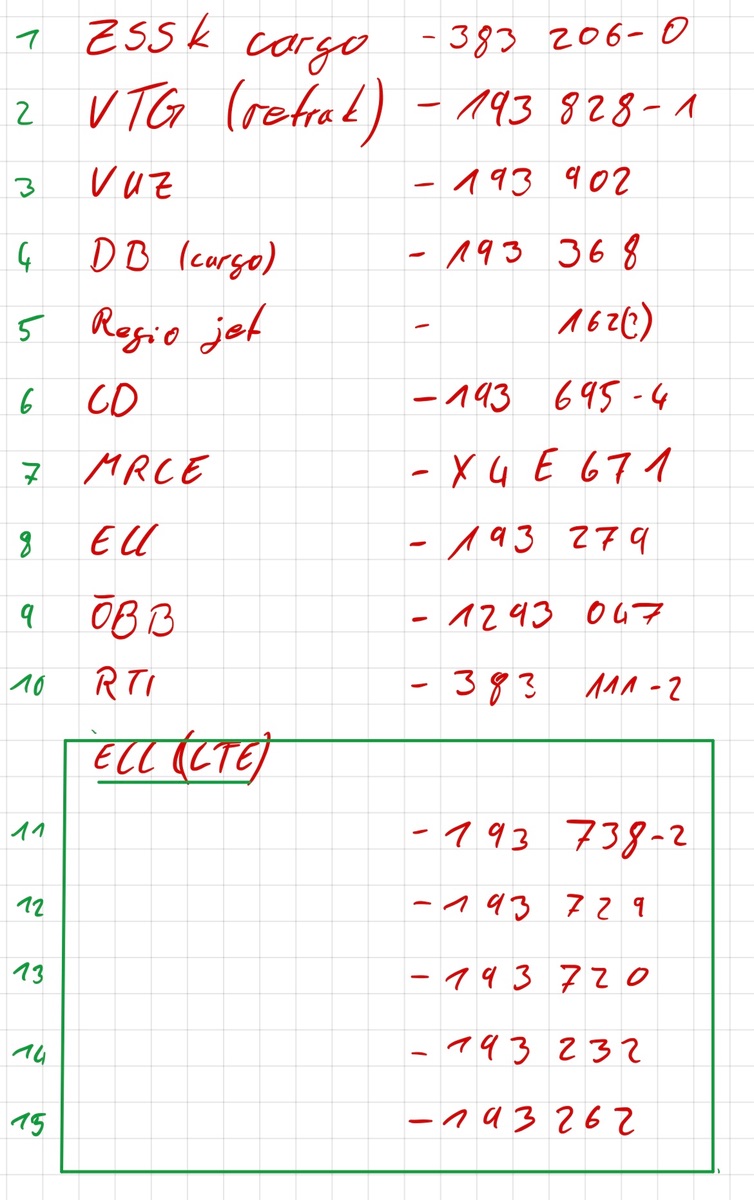 1 ZSSk cargo - 383 206-0
2 VTG (retrak) - 193 828-1
3 VUZ - 193 902
4 DB (cargo) - 193 368
5 Regio jet - 162(?)
6 CD - 193 695-4
7 MRCE - X4E 671
8 ELL - 193 279
9 ÖBB - 1293 047
10 RTI - 383 111-2
ELL (LTE)
11 - 193 738-2
12 - 193 729
13 - 193 720
14 - 193 232
15 - 193 262